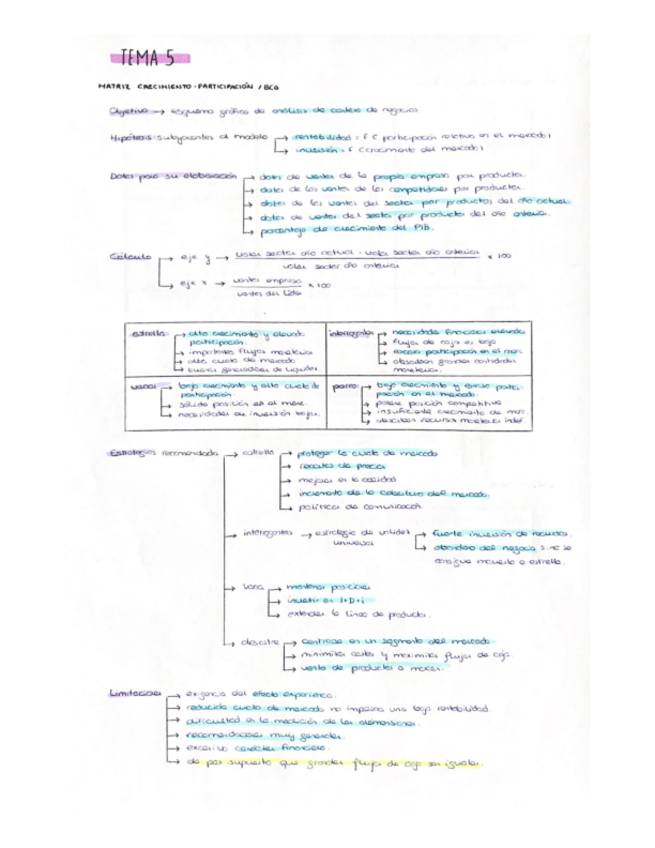 TEMA 5
MATRIZ CRECIMIENTO-PARTICIPACIÓN / BCG
Objetivo → esquema gráfico de análisis de cartera de negocios
Hipótesis subyacentes al modelo → rentabilidad: f (participación relativa en el mercado)
→ inversión: f (crecimiento del mercado)
Datos para su elaboración → datos de ventas de la propia empresa por productos.
→ datos de las ventas de los competidores por productos.
→ datos de las ventas del sector por productos del año actual.
→ datos de ventas del sector por producto del año anterior.
→ porcentaje de crecimiento del PIB.
Cálculo → eje y → valor sector año actual - valor sector año anterior x 100
valor sector año anterior
→ eje x → ventas empresa x 100
ventas del líder
estrella → alto crecimiento y elevada
participación.
→ importantes flujos monetarios
→ alta cuota de mercado
→ buenos generadores de liquidez.
interrogantes → necesidades financieras elevadas
→ flujos de caja es bajo
→ escasa participación en el mer.
→ absorben grandes cantidades
monetarias.
vacas → bajo crecimiento y alta cuota de
participación
→ sólida posición en el merc.
→ necesidades de inversión bajas.
perro → bajo crecimiento y escasa partici-
pación en el mercado
→ pobre posición competitiva
→ insuficiente crecimiento de mer.
→ absorben recursos
Estrategias recomendada → estrella → proteger la cuota de mercado
→ recortes de precios
→ mejoras en la calidad
→ incremento de la cobertura del mercado.
→ política de comunicación.
→ interrogantes → estrategia de
→ fuerte inversión de recursos.
→ abandono del negocio si no se
consigue moverlo a estrella.
→ vaca → mantener posiciones
→ invertir en I+D+i
→ extender la línea de productos.
→ desastre → centrarse en un segmento del mercado
→ minimizar costes y maximizar flujos de caja.
→ venta de productos o marcas.
Limitaciones → exigencia del efecto experiencia.
→ reducida cuota de mercado no implica una baja rentabilidad.
→ dificultad en la medición de las dimensiones.
→ recomendaciones muy generales.
→ excesivo carácter financiero.
→ da por supuesto que grandes flujos de caja son iguales.